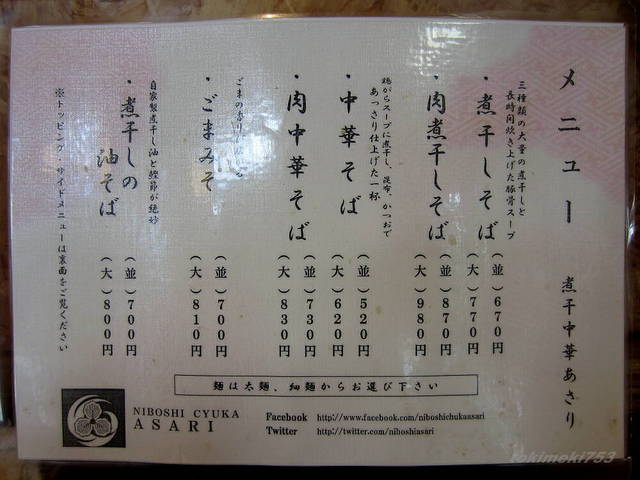 メニュー
煮干中華あさり
三種類の大量の煮干しと
長時間炊き上げた豚骨スープ
・煮干しそば
(並)670円
(大)770円
・肉煮干しそば
(並)870円
(大)980円
鶏がらスープに煮干し、昆布、かつおで
あっさり仕上げた一杯
・中華そば
(並)520円
(大)620円
・肉中華そば
(並)730円
(大)830円
ごまの香り
・ごまみそ
(並)700円
(大)810円
自家製煮干し油と鰹節が絶妙
・煮干しの
油そば
(並)700円
(大)800円
※トッピング・サイドメニューは裏面をご覧ください
麺は太麺、細麺からお選び下さい
NIBOSHI CYUKA
ASARI
Facebook http://www.facebook.com/niboshichukaasari
Twitter http://twitter.com/niboshiasari
tokimeki753